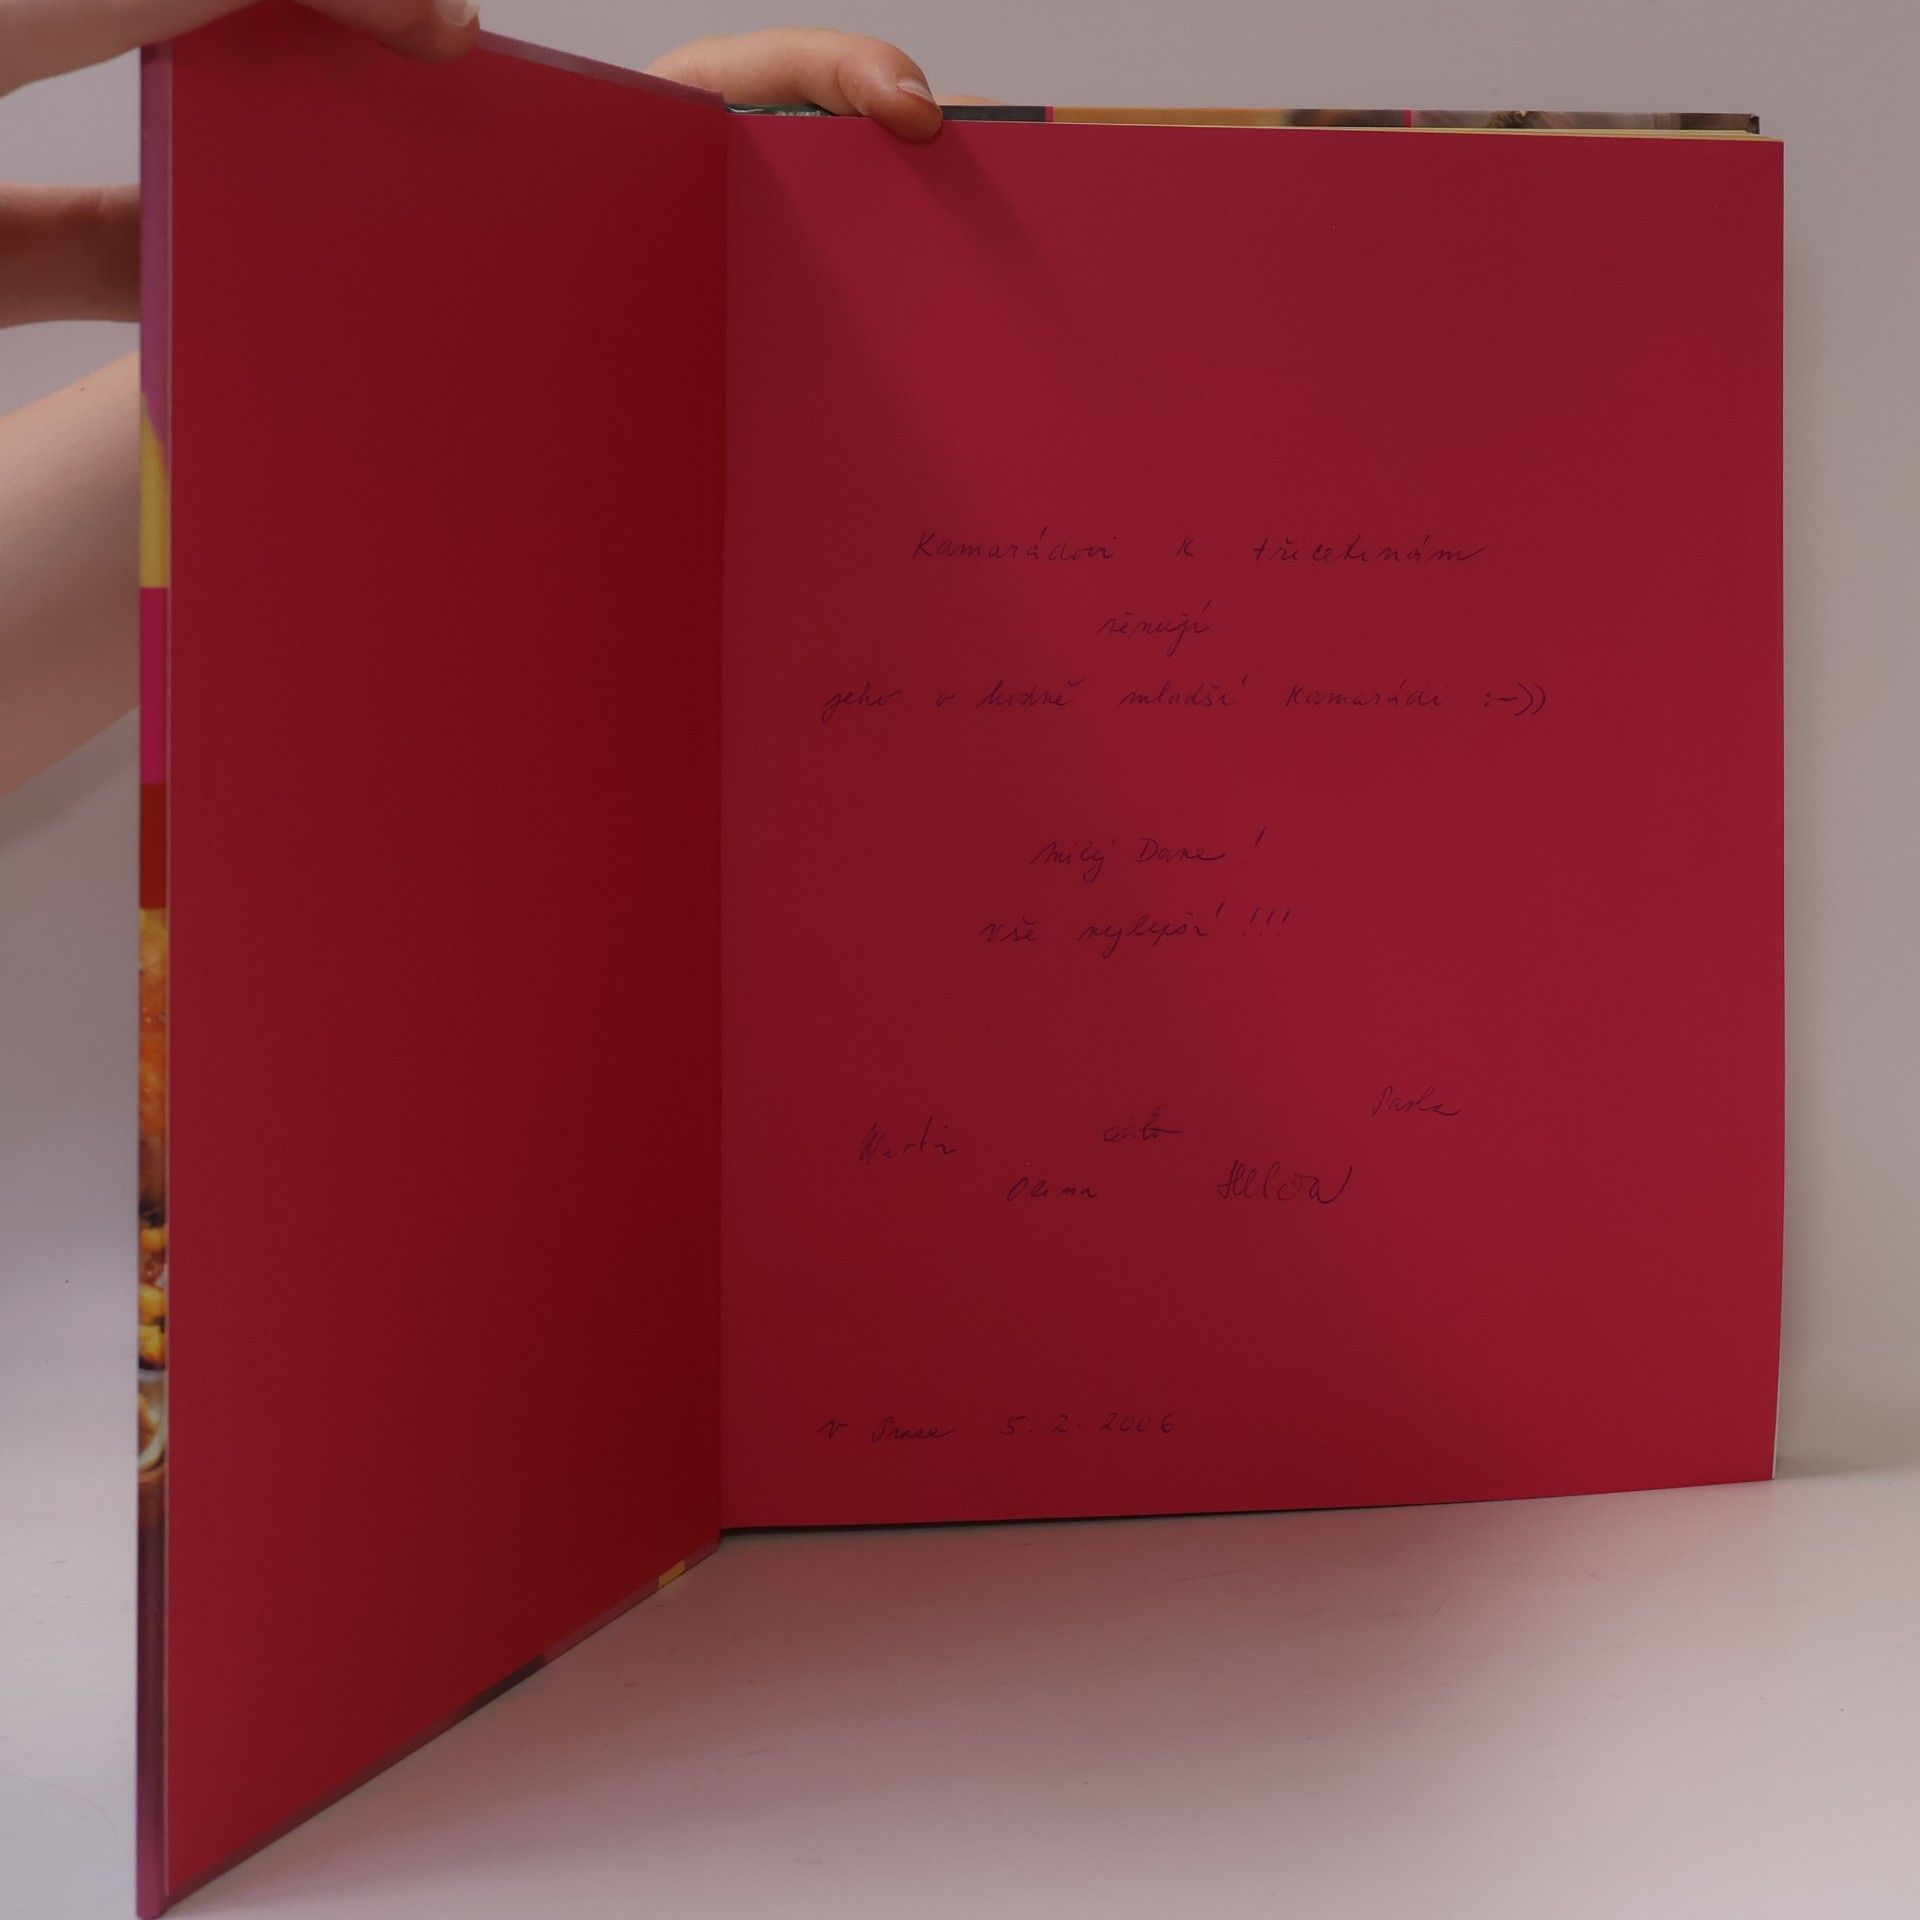 Kamarádovi k třicetinám
věnují
jeho o hodně mladší kamarádi :-))
Milý Dane!
Vše nejlepší!!!
Pavla
Martin
v Praze 5.2.2006